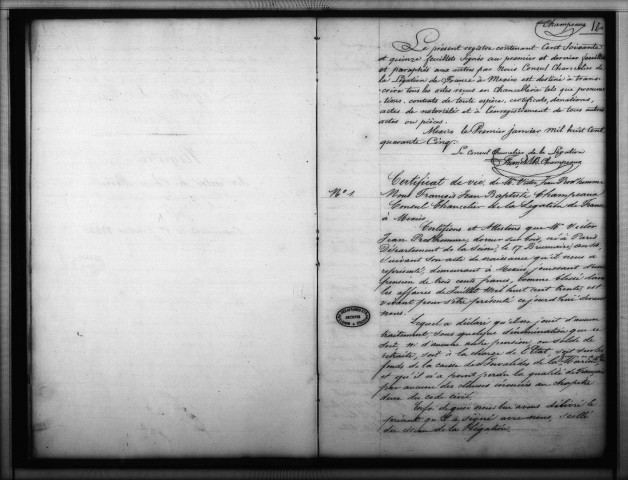 Champeaux
Le présent registre contenant Cent soixante
et quinze feuillets signés au premier et dernier feuillet
et paraphés aux autres par Nous Consul Chancelier de
la Légation de France à Mexico est destiné à trans-
crire tous les actes reçus en Chancellerie tels que procura-
tions, contrats de toute espèce, certificats, donations,
actes de notoriété et à l'enregistrement de tous autres
actes ou pièces.
Mexico le Premier janvier mil huit cent
quarante Cinq.
Le Consul Chancelier de la Légation
Champeaux
No 1
Certificat de vie, de Mr Victor Jean Prudhomme
Nous François Jean Baptiste Champeaux
Consul Chancelier de la Légation de France
à Mexico
Certifions et Attestons que Mr Victor
Jean Prudhomme, doreur sur bois, né à Paris
Département de la Seine, le 17 Brumaire, an
suivant son acte de naissance qu'il nous a
représenté, demeurant à Mexico, jouissant d'une
pension de trois cents francs, comme blessé dans
les affaires de Juillet Mil huit cent trente, est
vivant pour s'être présenté aujourd'hui devant
nous.
Lequel a déclaré qu'il ne jouit d'aucun
traitement, sous quelque dénomination que ce
soit, ni d'aucune autre pension, ou solde de
retraite, soit à la charge de l'Etat, soit sur les
fonds de la caisse des Invalides de la Marine
et qu'il n'a point perdu la qualité de Français
par aucune des clauses énoncées au chapitre
deux du code civil.
Enfoi de quoi nous lui avons délivré le
présent qu'il a signé avec nous, scellé
du sceau de la Légation.